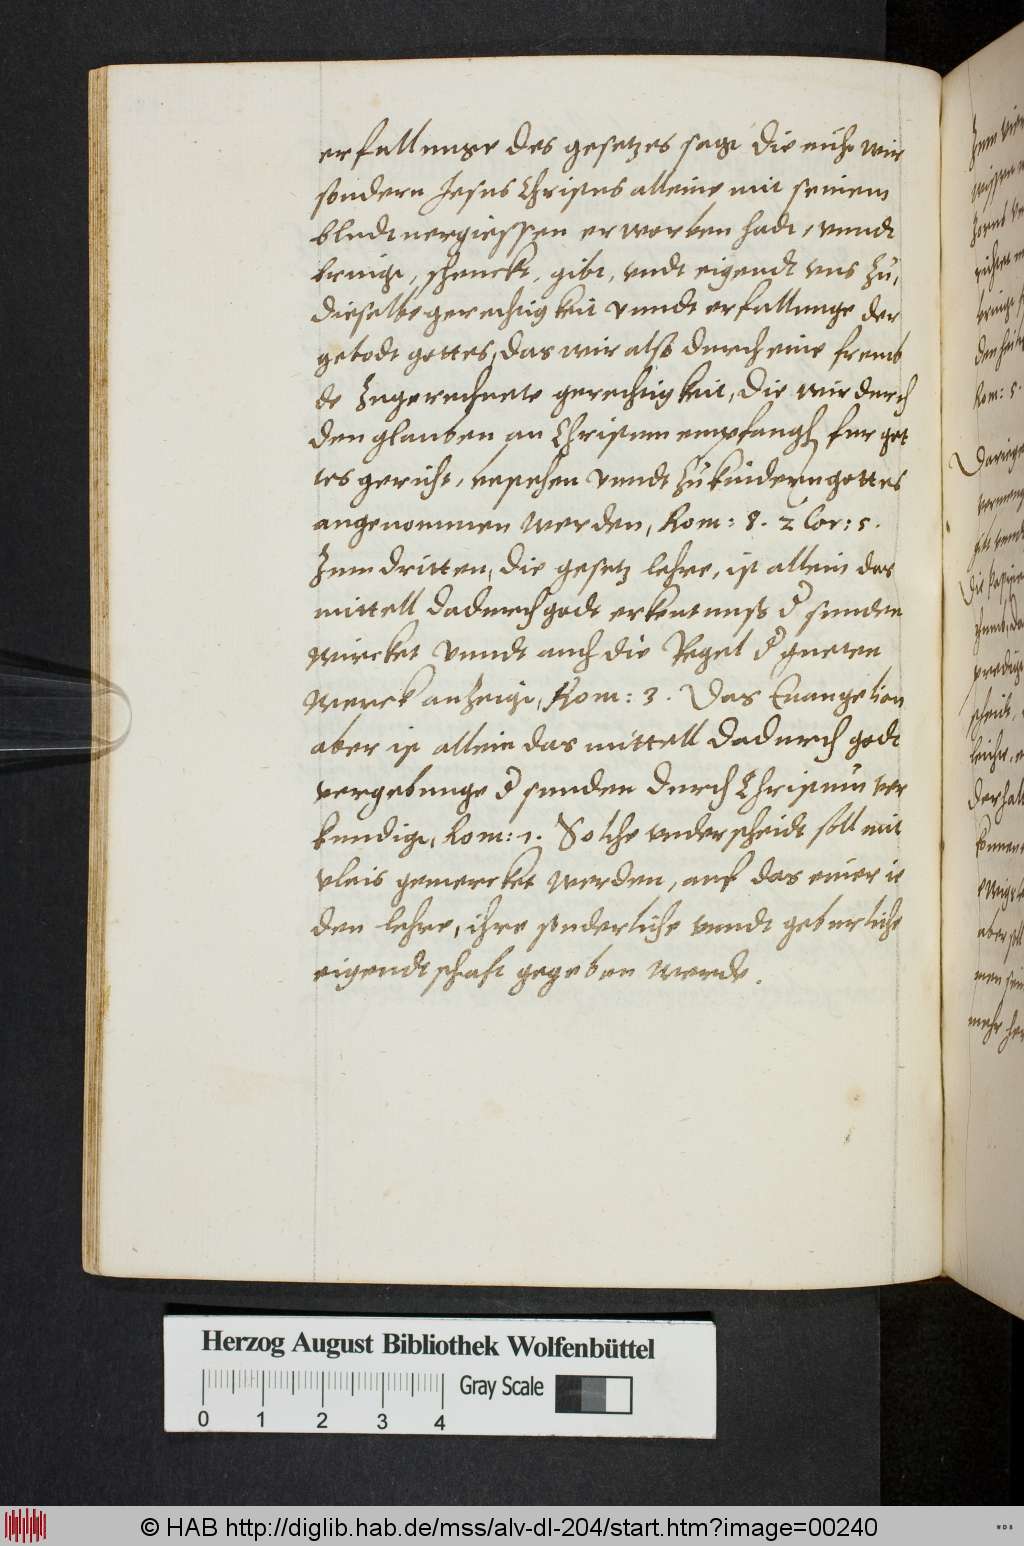 erfullunge des gesetzes sagt die nicht wir
sondern Jesus Christus alleine mit seinem
bludtuergiessen erworben hadt, vnndt
bringt, schenckt, gibt, vndt eigendt vns zu,
dieselbe gerechtigkeit vnndt erfullunge der
gebodt gottes, das wir alß durch eine fremb
de Zugerechnete gerechtigkeit, die wir durch
den glauben an Christum empfangen fur got
tes gericht, bestehen vnndt zu kindern gottes
angenommen werden, Rom: 8. 2 Cor: 5.
Zum dritten, die gesetz lehre, ist allein das
mittell dadurch godt erkentnuß der sunden
wircket vnndt auch die Regel der gueten
werck anzeigt, Rom: 3. Das Euangelion
aber ist allein das mittell dadurch godt
vergebunge der sunden durch Christum ver
kundigt, Rom: 1. Solche vnderscheidt soll mit
vleis gemercket werden, auf das einer ie
den lehre, ihre sonderliche vnndt geburliche
eigendtschaft gegeben werde.
Rom: 5.
Herzog August Bibliothek Wolfenbüttel
Gray Scale
0 1 2 3 4
© HAB http://diglib.hab.de/mss/alv-dl-204/start.htm?image=00240